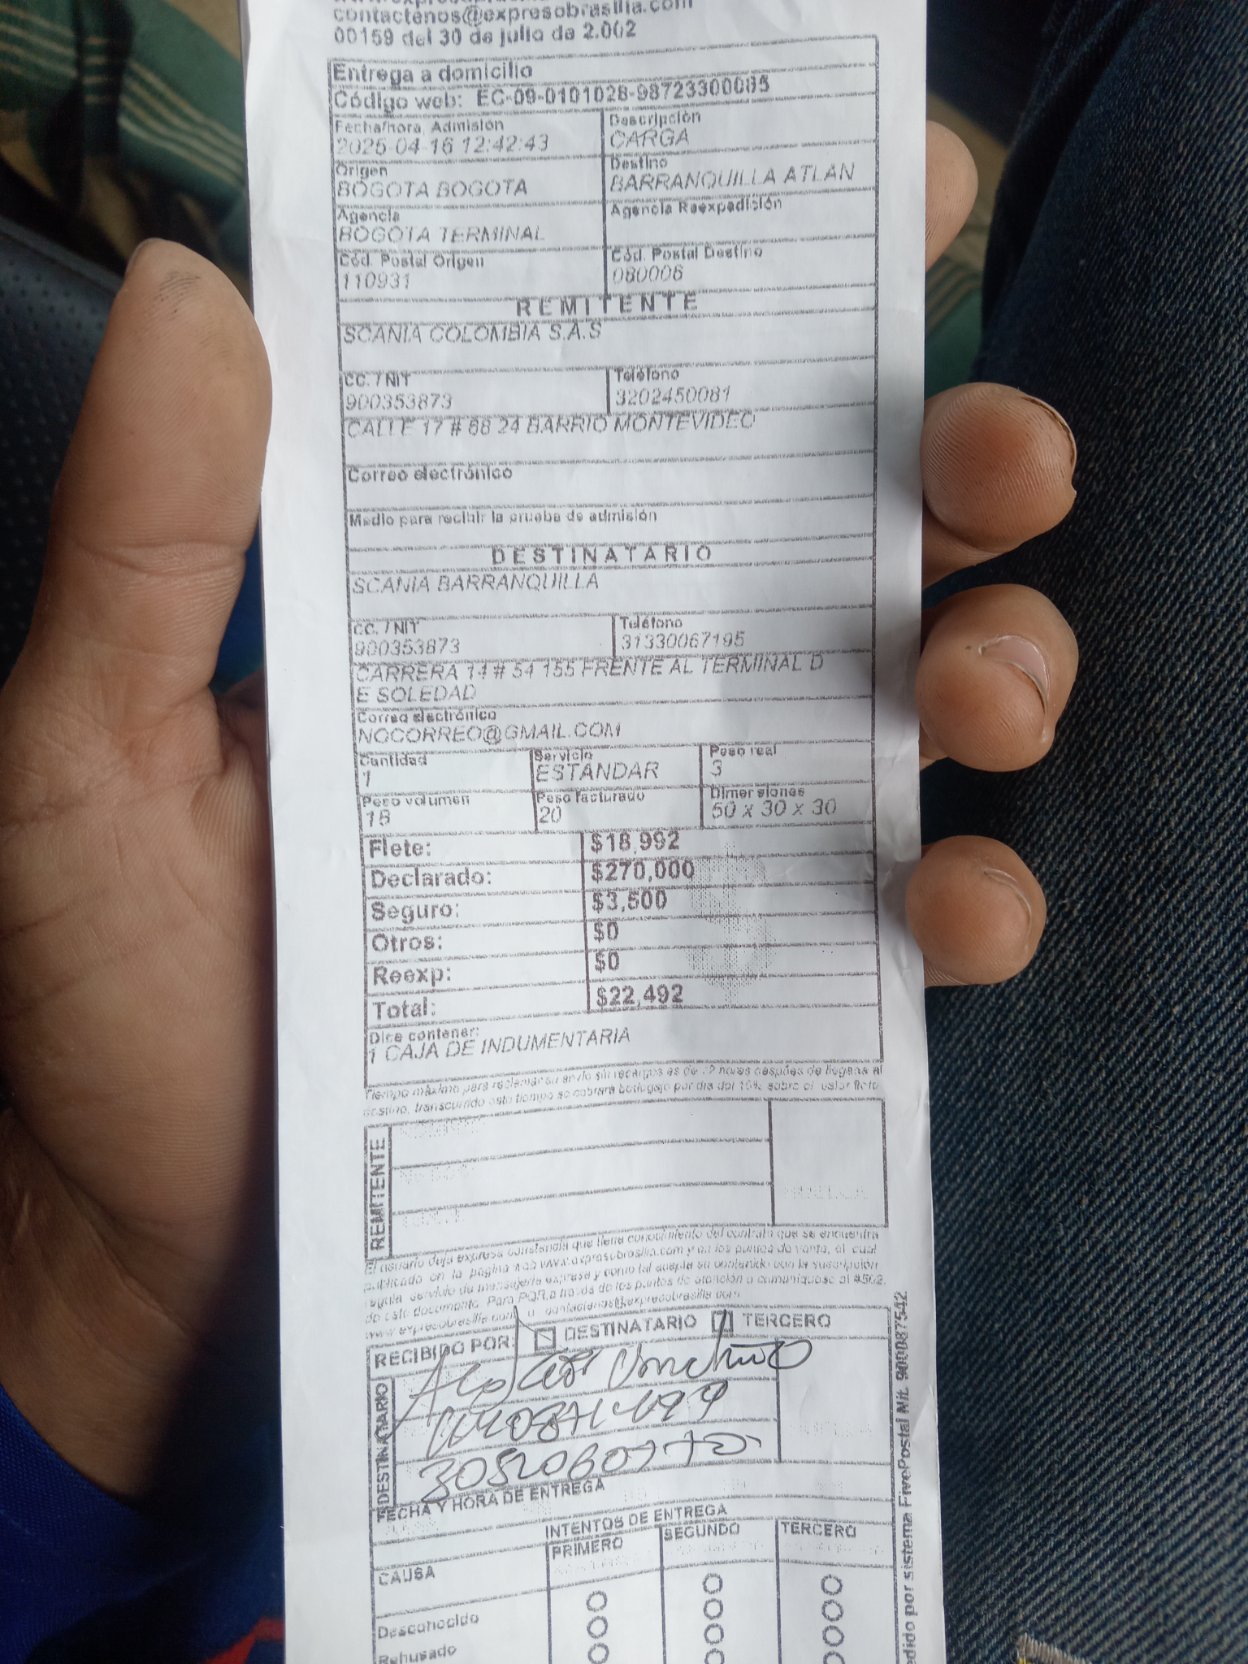 contactenos@expresobrasilia.com
00159 del 30 de julio de 2.002
Entrega a domicilio
Código web: EC-09-0101028-98723300085
Fecha/hora, Admisión
2025-04-16 12:42:43
Descripción
CARGA
Origen
BOGOTA BOGOTA
Destino
BARRANQUILLA ATLAN
Agencia
BOGOTA TERMINAL
Agencia Reexpedición
Cód. Postal Origen
110931
Cód. Postal Destino
080006
REMITENTE
SCANIA COLOMBIA S.A.S
CC. / NIT
900353873
Teléfono
3202450081
CALLE 17 # 68 24 BARRIO MONTEVIDEO
Correo electrónico
Medio para recibir la prueba de admisión
DESTINATARIO
SCANIA BARRANQUILLA
CC. / NIT
900353873
Teléfono
31330067195
CARRERA 14 # 54 155 FRENTE AL TERMINAL D
E SOLEDAD
Correo electrónico
NOCORREO@GMAIL.COM
Cantidad
1
Servicio
ESTANDAR
Peso real
3
Peso volumen
18
Peso facturado
20
Dimensiones
50 x 30 x 30
Flete: $18,992
Declarado: $270,000
Seguro: $3,500
Otros: $0
Reexp: $0
Total: $22,492
Dice contener:
1 CAJA DE INDUMENTARIA
Tiempo máximo para reclamar su envío sin recargos es de 72 horas después de llegada al
destino, transcurrido este tiempo se cobrara bodegaje por día del 10% sobre el valor flete
REMITENTE
El usuario deja expresa constancia que tiene conocimiento del contrato que se encuentra
publicado en la página web www.expresobrasilia.com y en los puntos de venta, el cual
regula servicio de mensajería expresa y como tal acepta su contenido con la suscripción
de este documento. Para PQR a través de los puntos de atención o comuníquese al #502,
www.expresobrasilia.com o contactenos@expresobrasilia.com
RECIBIDO POR: DESTINATARIO TERCERO
DESTINATARIO
FECHA Y HORA DE ENTREGA
INTENTOS DE ENTREGA
CAUSA PRIMERO SEGUNDO TERCERO
Desconocido
Rehusado
edido por sistema FivePostal Nit. 900087542